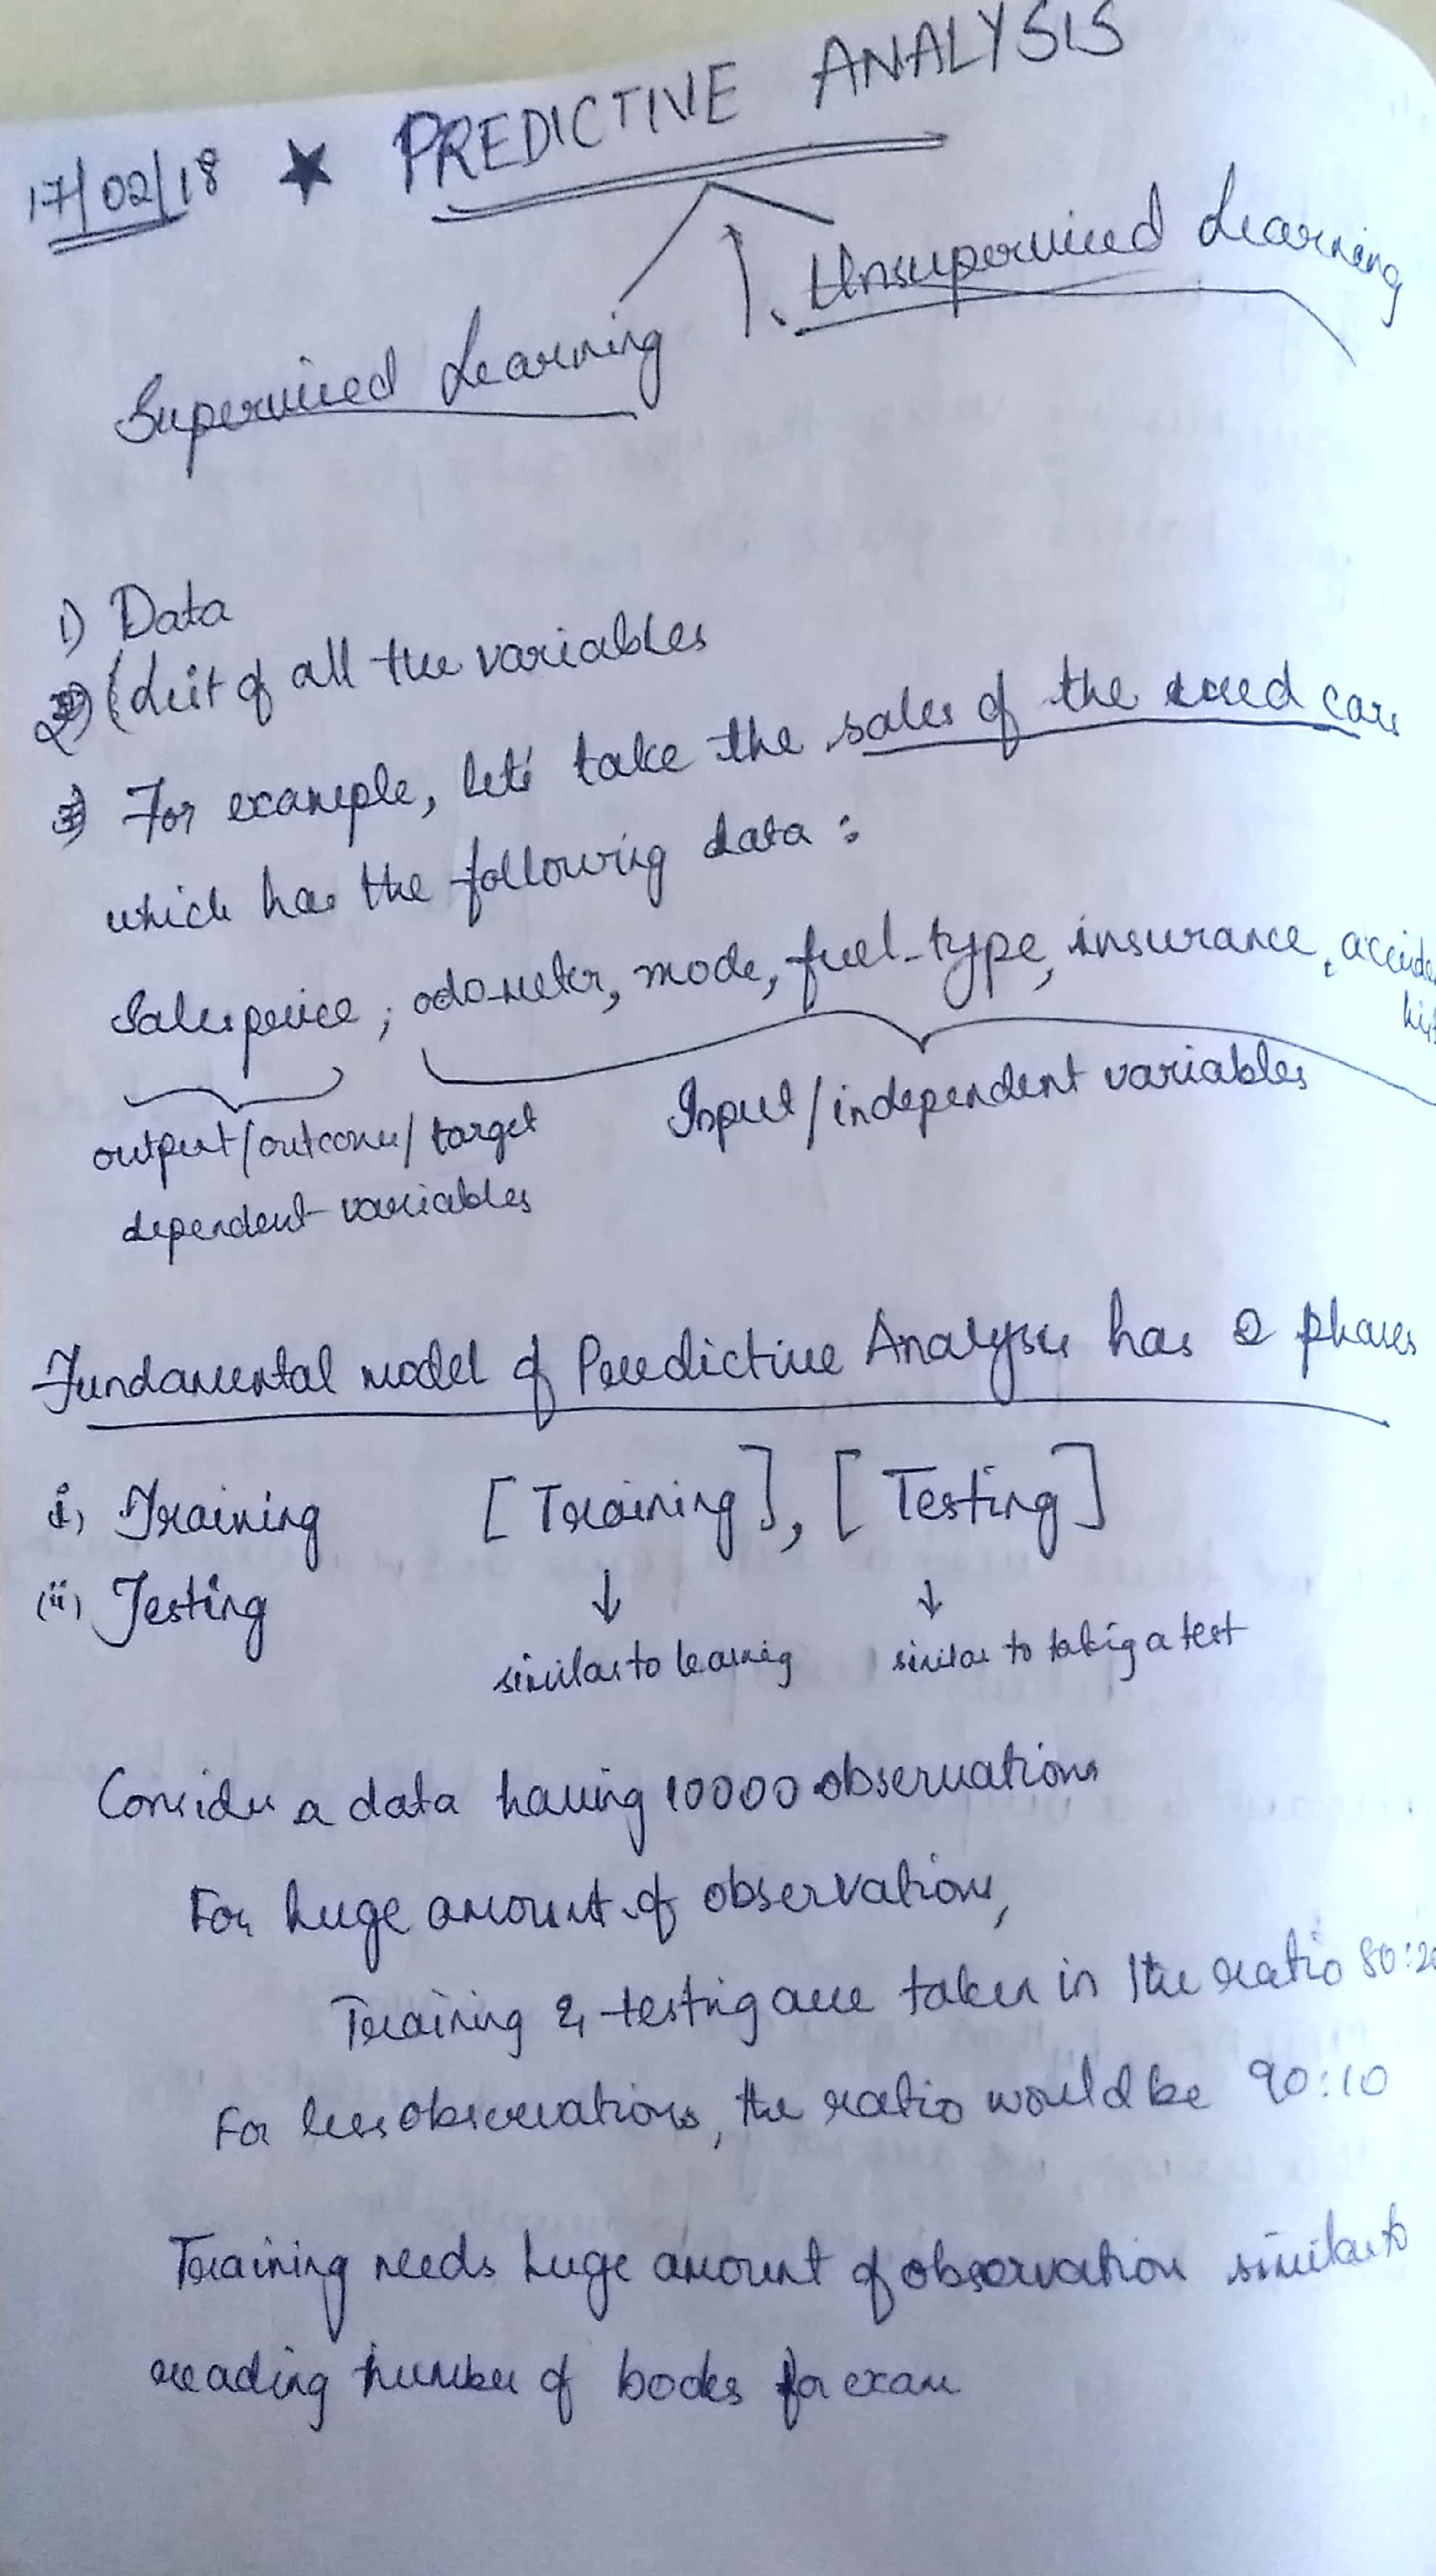 17/02/18 ★ PREDICTIVE ANALYSIS
Unsupervised Learning
Supervised Learning
1) Data
2) (List of all the variables
3) For example, let's take the sales of the used cars
which has the following data :
Salesprice ; odo-meter, mode, fuel-type, insurance, accide
his
output/outcome/target
Input/independent variables
dependent variables
Fundamental model of Predictive Analysis has 2 phases
i) Training [Training], [Testing]
(ii) Testing ↓ ↓
similar to learning similar to taking a test
Consider a data having 10000 observations
For huge amount of observations,
Training & testing are taken in the ratio 80:20
For less observations, the ratio would be 90:10
Training needs huge amount of observation similar to
reading number of books for exam